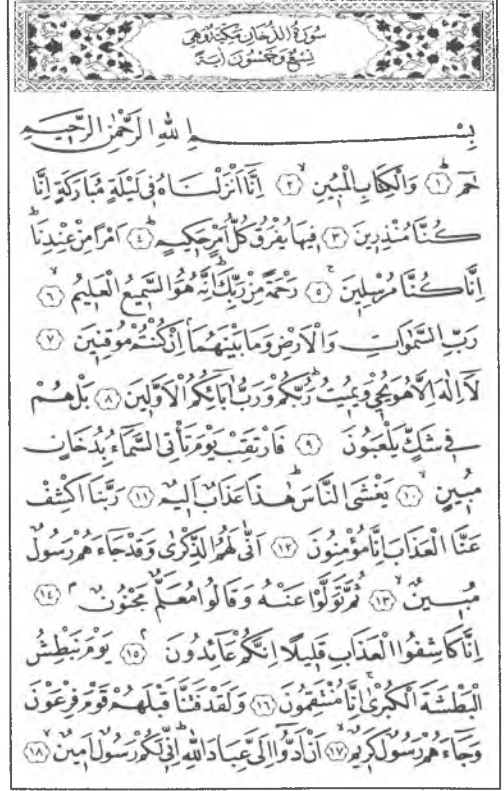 سُورَةُ الدُّخَانِ مَكِّيَّةٌ وَهِيَ
تِسْعٌ وَخَمْسُونَ اٰيَةً
بِسْمِ اللهِ الرَّحْمٰنِ الرَّحِيمِ
حٰمٓ ﴿١﴾ وَالْكِتَابِ الْمُبِينِ ﴿٢﴾ اِنَّٓا اَنْزَلْنَاهُ فِي لَيْلَةٍ مُبَارَكَةٍ اِنَّا
كُنَّا مُنْذِرِينَ ﴿٣﴾ فِيهَا يُفْرَقُ كُلُّ اَمْرٍ حَكِيمٍ ﴿٤﴾ اَمْرًا مِنْ عِنْدِنَا
اِنَّا كُنَّا مُرْسِلِينَ ﴿٥﴾ رَحْمَةً مِنْ رَبِّكَ اِنَّهُ هُوَ السَّمِيعُ الْعَلِيمُ ﴿٦﴾
رَبِّ السَّمٰوَاتِ وَالْاَرْضِ وَمَا بَيْنَهُمَا اِنْ كُنْتُمْ مُوقِنِينَ ﴿٧﴾
لَٓا اِلٰهَ اِلَّا هُوَ يُحْيِ وَيُمِيتُ رَبُّكُمْ وَرَبُّ اٰبَٓائِكُمُ الْاَوَّلِينَ ﴿٨﴾ بَلْ هُمْ
فِي شَكٍّ يَلْعَبُونَ ﴿٩﴾ فَارْتَقِبْ يَوْمَ تَأْتِي السَّمَٓاءُ بِدُخَانٍ
مُبِينٍ ﴿١٠﴾ يَغْشَى النَّاسَ هٰذَا عَذَابٌ اَلِيمٌ ﴿١١﴾ رَبَّنَا اكْشِفْ
عَنَّا الْعَذَابَ اِنَّا مُؤْمِنُونَ ﴿١٢﴾ اَنّٰى لَهُمُ الذِّكْرٰى وَقَدْ جَٓاءَهُمْ رَسُولٌ
مُبِينٌ ﴿١٣﴾ ثُمَّ تَوَلَّوْا عَنْهُ وَقَالُوا مُعَلَّمٌ مَجْنُونٌ ﴿١٤﴾
اِنَّا كَاشِفُوا الْعَذَابِ قَلِيلًا اِنَّكُمْ عَٓائِدُونَ ﴿١٥﴾ يَوْمَ نَبْطِشُ
الْبَطْشَةَ الْكُبْرٰى اِنَّا مُنْتَقِمُونَ ﴿١٦﴾ وَلَقَدْ فَتَنَّا قَبْلَهُمْ قَوْمَ فِرْعَوْنَ
وَجَٓاءَهُمْ رَسُولٌ كَرِيمٌ ﴿١٧﴾ اَنْ اَدُّٓوا اِلَيَّ عِبَادَ اللهِ اِنِّي لَكُمْ رَسُولٌ اَمِينٌ ﴿١٨﴾